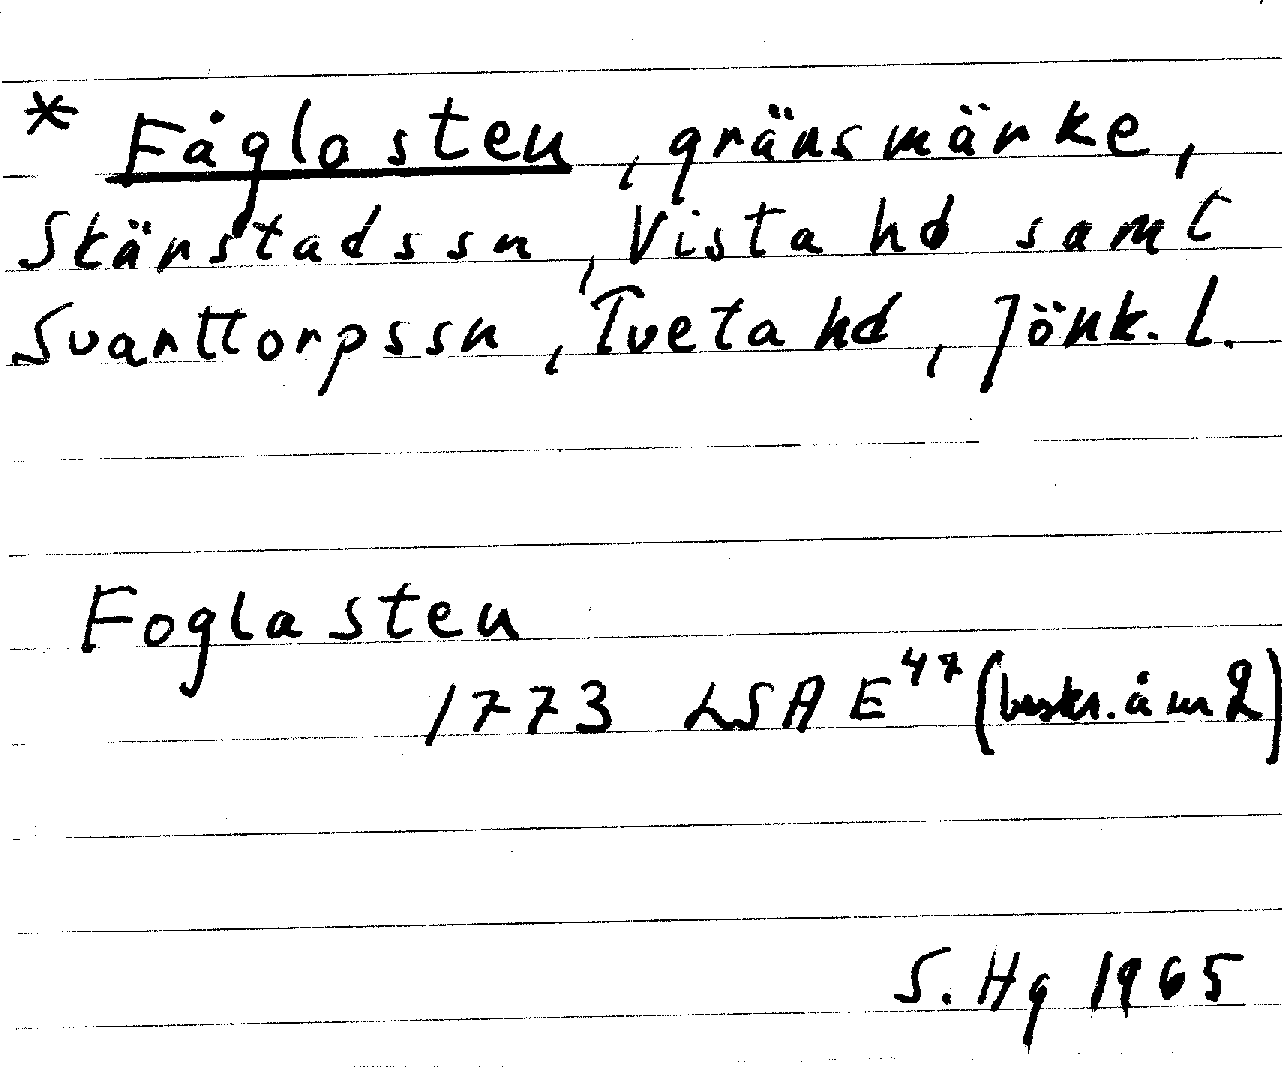 * Fåglosten, gränsmärke,
Skärstads sn, Vista hd samt
Svarttorps sn, Tveta hd, Jönk. l.
Foglasten
1773 LSA E 47 (beskr. å nr 2)
S. Hg 1965